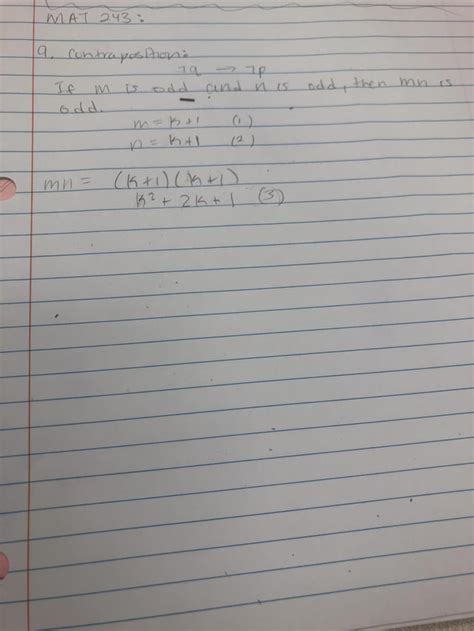 MAT 243:
9. Contraposition:
¬q → ¬p
If m is odd and n is odd, then mn is
odd.
m = k+1 (1)
n = k+1 (2)
mn = (k+1)(k+1)
k² + 2k + 1 (3)